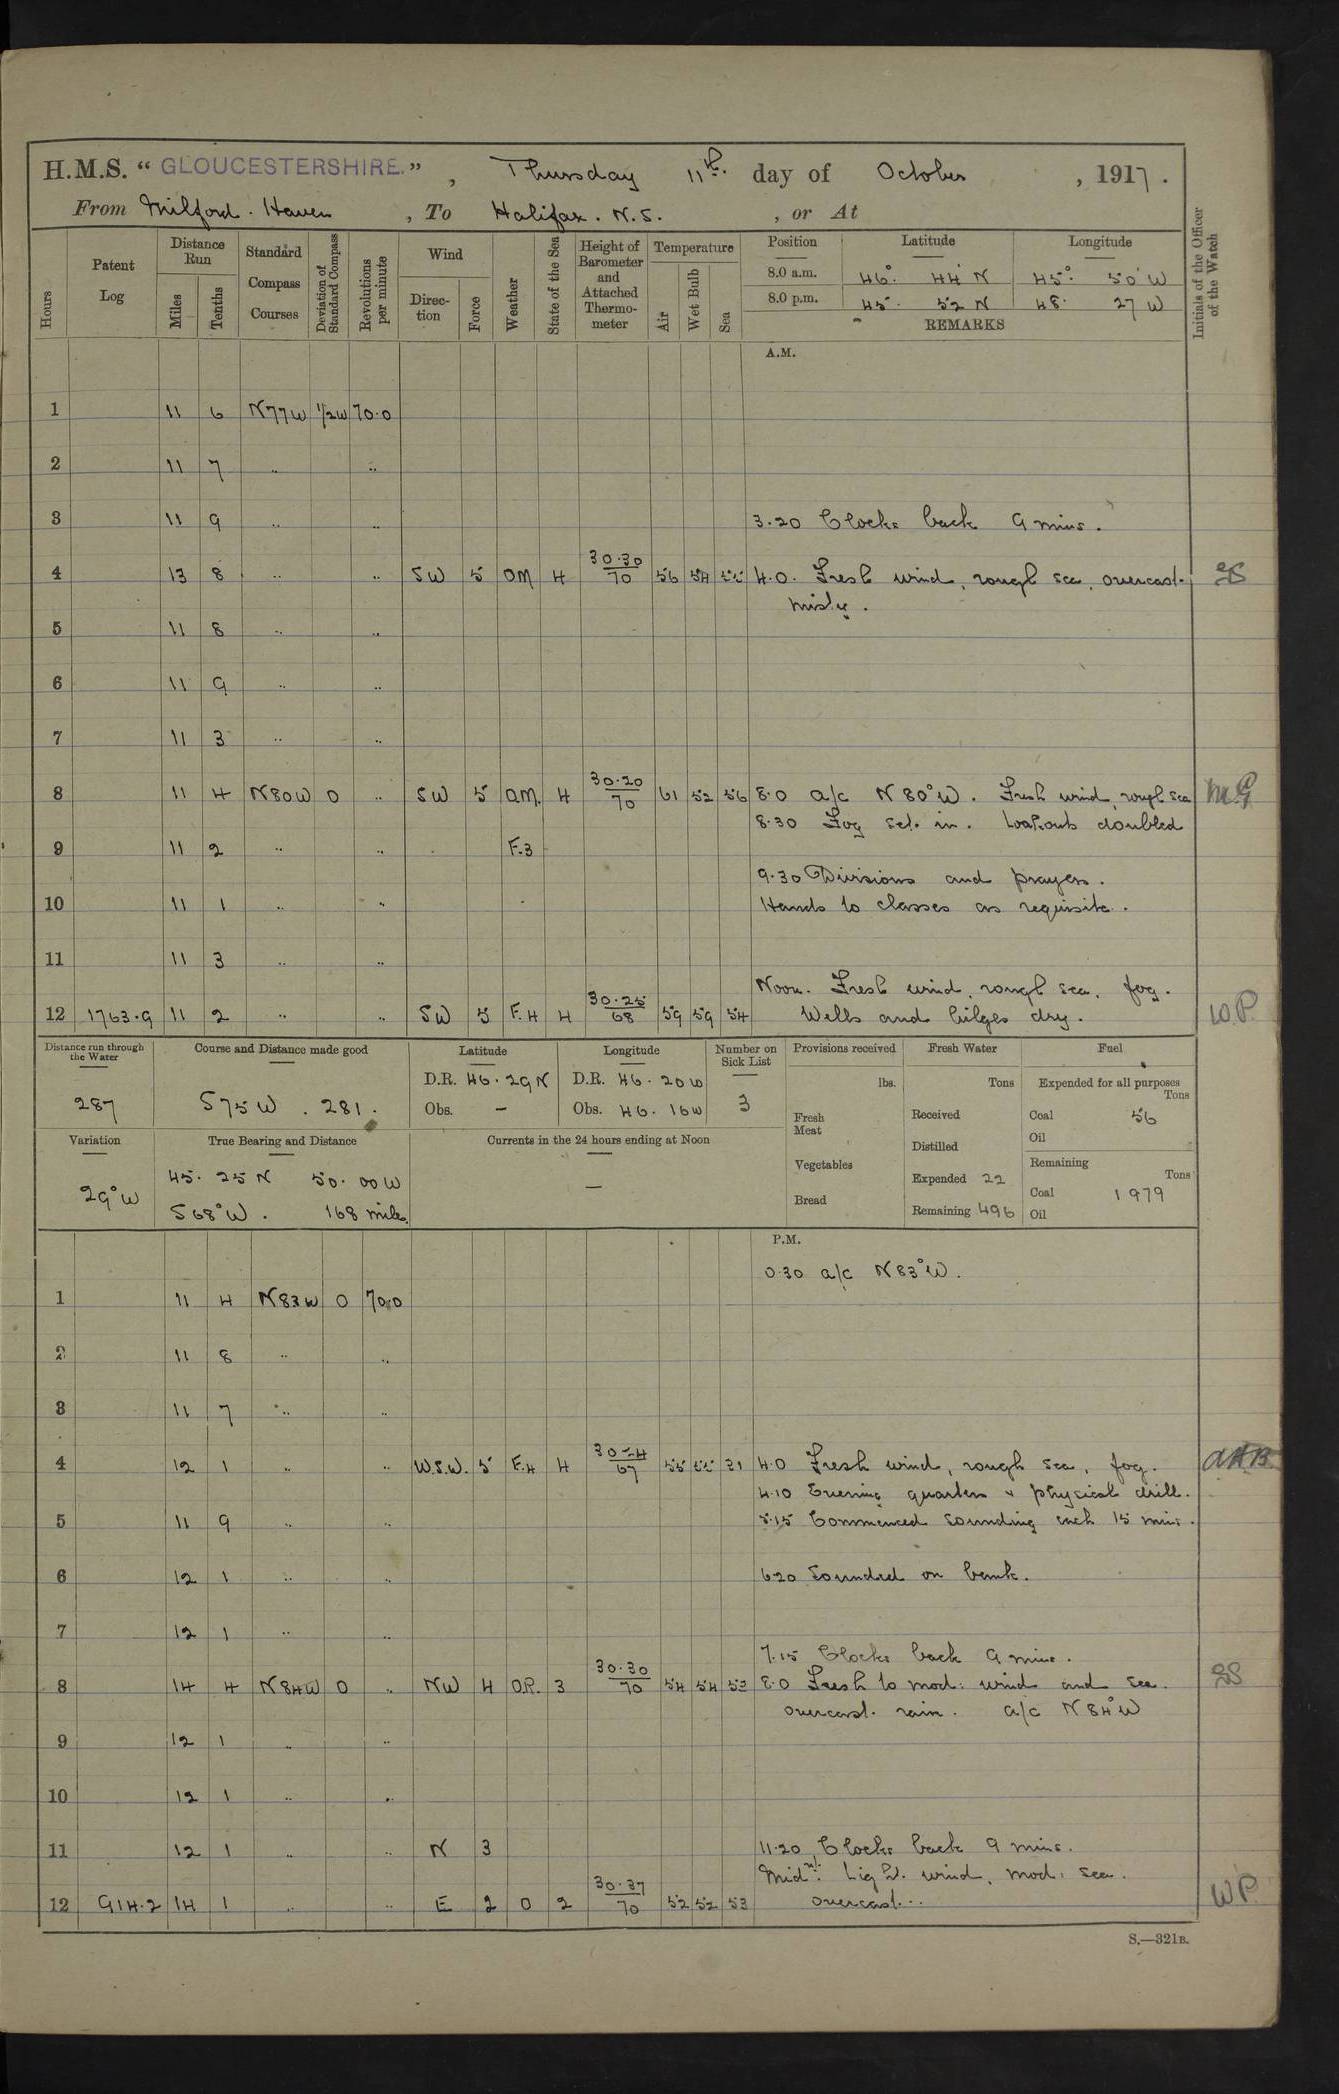 H.M.S. “ GLOUCESTERSHIRE. ” , Thursday 11th. day of October , 1917 .
From Milford . Haven , To Halifax . N.S. , or At
Hours Patent Log Distance Run Miles Tenths Standard Compass Courses Deviation of Standard Compass Revolutions per minute Wind Direc-tion Force Weather State of the Sea Height of Barometer and Attached Thermo-meter Temperature Air Wet Bulb Sea Position Latitude Longitude Initials of the Officer of the Watch
8.0 a.m. 46° 44' N 45° 50' W
8.0 p.m. 45 . 52 N 48 . 27 W
REMARKS
A.M.
1 11 6 N77W 1/2W 70.0
2 11 7 .. ..
3 11 9 .. .. 3.20 Clocks back 9 mins .
4 13 8 .. .. SW 5 OM 4 30.30/70 56 54 55 4.0. Fresh wind, rough sea, overcast.
misty .
5 11 8 .. ..
6 11 9 .. ..
7 11 3 .. ..
8 11 4 N80W 0 .. SW 5 OM. 4 30.20/70 61 52 56 8.0 a/c N 80°W . Fresh wind, rough sea M.G
8.30 Fog set in . Lookouts doubled
9 11 2 .. .. F.3
9.30 Divisions and prayers .
10 11 1 .. .. Hands to classes as requisite .
11 11 3 .. ..
Noon . Fresh wind, rough sea, fog .
12 1763.9 11 2 .. .. SW 5 F.4 4 30.25/68 59 59 54 Wells and bilges dry . W.P.
Distance run through the Water Course and Distance made good Latitude Longitude Number on Sick List Provisions received Fresh Water Fuel
287 S75W . 281 . D.R. 46 . 29N D.R. 46 . 20W 3 lbs. Tons Expended for all purposes Tons
Obs. – Obs. 46 . 16W Fresh Meat Received Coal 56
Oil
Variation True Bearing and Distance Currents in the 24 hours ending at Noon Distilled
29°W 45 . 25 N 50 . 00 W – Vegetables Expended 22 Remaining Tons
S68°W . 168 miles Bread Remaining 496 Coal 1979
Oil
P.M.
0.30 a/c N83°W .
1 11 4 N83W 0 70.0
2 11 8 .. ..
3 11 7 .. ..
4 12 1 .. .. W.S.W. 5 F.4 4 67 55 55 4.0 Fresh wind, rough sea, fog .
4.10 Evening quarters & physical drill .
5 11 9 .. .. 5.15 Commenced sounding each 15 mins .
6 12 1 .. .. 6.20 Sounded on bank .
7 12 1 .. ..
7.15 Clocks back 9 mins .
8 14 4 N84W 0 .. NW 4 O.R. 3 30.30/70 54 54 53 8.0 Fresh to mod: wind and sea
overcast . rain . a/c N 84°W
9 12 1 .. ..
10 12 1 .. ..
11 12 1 .. .. N 3 11.20 Clocks back 9 mins .
Midnt: Light wind, mod: sea .
12 914.2 14 1 .. .. E 2 O 2 30.37/70 52 52 53 overcast . W.P.
S.—321B.